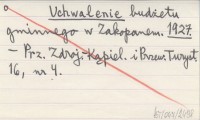 Uchwalenie budżetu
gminnego w Zakopanem. 1927.
– Prz. Zdroj. Kąpiel. i Przew. Turyst
16, nr 4.